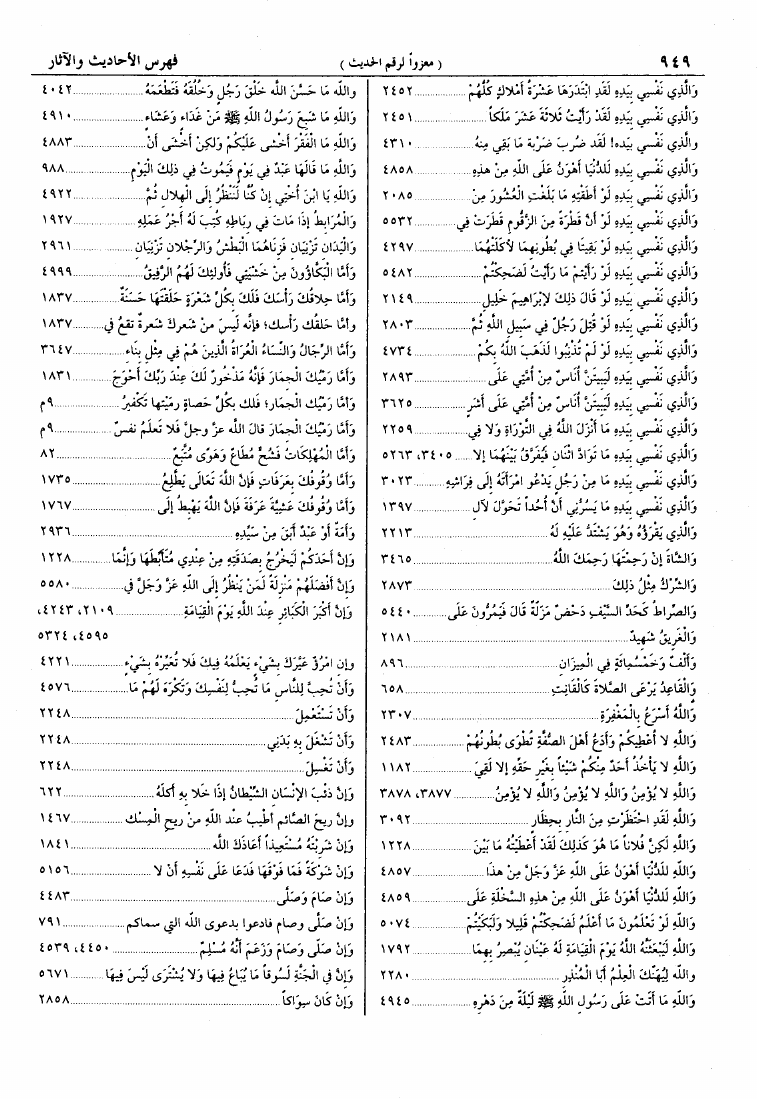 ٩٤٩
( معزواً لرقم الحديث )
فهرس الأحاديث والآثار
وَالَّذِي نَفْسِي بِيَدِهِ لَقَدِ ابْتَدَرَهَا عَشَرَةُ أَمْلاكٍ كُلُّهُمْ ٢٤٥٢
وَالَّذِي نَفْسِي بِيَدِهِ لَقَدْ رَأَيْتُ ثَلاثَةَ عَشَرَ مَلَكاً ٢٤٥١
والَّذِي نَفْسِي بِيَدِهِ! لَقَد ضُرِبَ ضَرْبَة مَا بَقِي مِنهُ ٤٣١٠
وَالَّذِي نَفْسِي بِيَدِهِ لَلدُّنْيَا أَهْوَنُ عَلَى اللَّهِ مِنْ هذِهِ ٤٨٥٨
وَالَّذِي نَفْسِي بِيَدِهِ لَوْ أَطَقْتِهِ مَا بَلَغَتِ الْعُشُورَ مِنْ ٢٠٨٥
وَالَّذِي نَفْسِي بِيَدِهِ لَوْ أَنَّ قَطْرَةً مِنَ الزَّقُّومِ قَطَرَتْ فِي ٥٥٣٢
وَالَّذِي نَفْسِي بِيَدِهِ لَوْ بَقِيَتَا فِي بُطُونِهِمَا لأَكَلَتْهُمَا ٤٢٩٧
وَالَّذِي نَفْسِي بِيَدِهِ لَوْ رَأَيْتُمْ مَا رَأَيْتُ لَضَحِكْتُمْ ٥٤٨٢
وَالَّذِي نَفْسِي بِيَدِهِ لَوْ قَالَ ذلِكَ لإِبْرَاهِيمَ خَلِيلِ ٢١٤٩
وَالَّذِي نَفْسِي بِيَدِهِ لَوْ قُتِلَ رَجُلٌ فِي سَبِيلِ اللَّهِ ثُمَّ ٢٨٠٣
وَالَّذِي نَفْسِي بِيَدِهِ لَوْ لَمْ تُذْنِبُوا لَذَهَبَ اللَّهُ بِكُمْ ٤٧٣٤
وَالَّذِي نَفْسِي بِيَدِهِ لَيَبِيتَنَّ أُنَاسٌ مِنْ أُمَّتِي عَلَى ٢٨٩٣
وَالَّذِي نَفْسِي بِيَدِهِ لَيَبِيتَنَّ أُنَاسٌ مِنْ أُمَّتِي عَلَى أَشَرٍ ٣٦٢٥
وَالَّذِي نَفْسِي بِيَدِهِ مَا أَنْزَلَ اللَّهُ فِي التَّوْرَاةِ وَلا فِي ٢٢٥٩
وَالَّذِي نَفْسِي بِيَدِهِ مَا تَوَادَّ اثْنَانِ فَيُفَرَّقُ بَيْنَهُمَا إلا ٣٤٠٥، ٥٢٦٣
وَالَّذِي نَفْسِي بِيَدِهِ مَا مِنْ رَجُلٍ يَدْعُو امْرَأَتَهُ إِلَى فِرَاشِهِ ٣٠٢٣
وَالَّذِي نَفْسِي بِيَدِهِ مَا يَسُرُّنِي أَنَّ أُحُداً تَحَوَّلَ لآلِ ١٣٩٧
وَالَّذِي يَقْرَؤُهُ وَهُوَ يَشْتَدُّ عَلَيْهِ لَهُ ٢٢١٣
وَالشَّاةَ إِنْ رَحِمْتَهَا رَحِمَكَ اللَّهُ ٣٤٦٥
وَالشِّرْكُ مِثْلُ ذلِكَ ٢٨٧٣
وَالصِّرَاطُ كَحَدِّ السَّيْفِ دَحْضٌ مَزَلَّةٌ قَالَ فَيَمُرُّونَ عَلَى ٥٤٤٠
وَالْغَرِيقُ شَهِيدٌ ٢١٨١
وَأَلْفٌ وَخَمْسُمِائَةٍ فِي الْمِيزَانِ ٨٩٦
وَالْقَاعِدُ يَرْعَى الصَّلاةَ كَالْقَانِتِ ٦٥٨
وَاللَّهُ أَسْرَعُ بِالْمَغْفِرَةِ ٢٣٠٧
وَاللَّهِ لا أُعْطِيكُمْ وَأَدَعُ أَهْلَ الصُّفَّةِ تُطْوَى بُطُونُهُمْ ٢٤٨٣
وَاللَّهِ لا يَأْخُذُ أَحَدٌ مِنْكُمْ شَيْئاً بِغَيْرِ حَقِّهِ إلا لَقِيَ ١١٨٢
وَاللَّهِ لا يُؤْمِنُ وَاللَّهِ لا يُؤْمِنُ وَاللَّهِ لا يُؤْمِنُ ٣٨٧٧، ٣٨٧٨
وَاللَّهِ لَقَدِ احْتَظَرْتِ مِنَ النَّارِ بِحِظَارٍ ٣٠٩٢
وَاللَّهِ لَكِنَّ فُلاناً مَا هُوَ كَذلِكَ لَقَدْ أَعْطَيْتُهُ مَا بَيْنَ ١٢٢٨
وَاللَّهِ لَلدُّنْيَا أَهْوَنُ عَلَى اللَّهِ عَزَّ وَجَلَّ مِنْ هذَا ٤٨٥٧
وَاللَّهِ لَلدُّنْيَا أَهْوَنُ عَلَى اللَّهِ مِنْ هذِهِ السَّخْلَةِ عَلَى ٤٨٥٩
وَاللَّهِ لَوْ تَعْلَمُونَ مَا أَعْلَمُ لَضَحِكْتُمْ قَلِيلا وَلَبَكَيْتُمْ ٥٠٧٤
وَاللَّهِ لَيَبْعَثَنَّهُ اللَّهُ يَوْمَ الْقِيَامَةِ لَهُ عَيْنَانِ يُبْصِرُ بِهِمَا ١٧٩٢
والله لِيَهْنَكَ الْعِلْمُ أَبَا الْمُنْذِرِ ٢٢٨٠
وَاللَّهِ مَا أَتَتْ عَلَى رَسُولِ اللَّهِ ﷺ لَيْلَةٌ مِنَ دَهْرِهِ ٤٩٤٥
واللَّهِ مَا حَسَّنَ الله خَلْقَ رَجُلٍ وَخُلُقَهُ فَتَطْعَمَهُ ٤٠٤٢
وَاللَّهِ مَا شَبِعَ رَسُولُ اللَّهِ ﷺ مِنْ غَدَاء وَعَشَاء ٤٩١٠
وَاللَّهِ مَا الْفَقْرَ أَخْشى عَلَيْكُمْ وَلكِنْ أَخْشى أَنْ ٤٨٨٣
وَاللَّهِ مَا قَالَهَا عَبْدٌ فِي يَوْمٍ فَيَمُوتُ فِي ذلِكَ الْيَوْمِ ٩٨٨
وَاللَّهِ يَا ابْنَ أُخْتِي إِنْ كُنَّا لَنَنْظُرُ إِلَى الْهِلالِ ثُمَّ ٤٩٢٢
وَالْمُرَابِطُ إِذَا مَاتَ فِي رِبَاطِهِ كُتِبَ لَهُ أَجْرُ عَمَلِهِ ١٩٢٧
وَالْيَدَانِ تَزْنِيَانِ فَزِنَاهُمَا الْبَطْشُ وَالرِّجْلانِ تَزْنِيَانِ ٢٩٦١
وَأَمَّا الْبَكَّاؤُونَ مِنْ خَشْيَتِي فَأُولئِكَ لَهُمُ الرَّفِيقُ ٤٩٩٩
وَأَمَّا حِلاقُكَ رَأْسَكَ فَلَكَ بِكُلِّ شَعْرَةٍ حَلَقْتَهَا حَسَنَةٌ ١٨٣٧
وأما حَلقُك رأسك؛ فإنَّه لَيسَ مِنْ شعرِكَ شَعرةٌ تقعُ في ١٨٣٧
وَأَمَّا الرِّجَالُ وَالنِّسَاءُ الْعُرَاةُ الَّذِينَ هُمْ فِي مِثْلِ بِنَاءِ ٣٦٤٧
وَأَمَّا رَمْيُكَ الْجِمَارَ فَإِنَّهُ مَذْخُورٌ لَكَ عِنْدَ رَبِّكَ أَحْوَجَ ١٨٣١
وَأَمَّا رَمْيُكَ الْجِمَار؛ فلك بِكُلِّ حَصاةٍ رميْتَها تَكْفيرُ ٩م
وَأَمَّا رَمْيُكَ الْجِمَارَ قالَ اللَّهُ عز وجلَّ فَلا تَعلَمُ نفسٌ ٩م
وَأَمَّا الْمُهْلِكَاتُ فَشُحٌّ مُطَاعٌ وَهَوًى مُتَّبَعٌ ٨٢
وَأَمَّا وُقُوفُكَ بِعَرَفَاتٍ فَإِنَّ اللَّهَ تَعَالَى يَطَّلِعُ ١٧٣٥
وَأَمَّا وُقُوفُكَ عَشِيَّةَ عَرَفَةَ فَإِنَّ اللَّهَ يَهْبِطُ إِلَى ١٧٦٧
وَأَمَةٌ أَوْ عَبْدٌ أَبَقَ مِنْ سَيِّدِهِ ٢٩٣٦
وَإِنَّ أَحَدَكُمْ لَيَخْرُجُ بِصَدَقَتِهِ مِنْ عِنْدِي مُتَأَبِّطَهَا وَإِنَّمَا ١٢٢٨
وَإِنَّ أَفْضَلَهُمْ مَنْزِلَةً لَمَنْ يَنْظُرُ إِلَى اللَّهِ عَزَّ وَجَلَّ فِي ٥٥٨٠
وَإِنَّ أَكْبَرَ الْكَبَائِرِ عِنْدَ اللَّهِ يَوْمَ الْقِيَامَةِ ٢١٠٩، ٤٢٤٣،
٤٥٩٥، ٥٣٢٤
وإن امْرُؤٌ عَيَّرَكَ بِشَيْءٍ يَعْلَمُهُ فِيكَ فَلا تُعَيِّرْهُ بِشَيْءٍ ٤٢٢١
وَأَنْ تُحِبَّ لِلنَّاسِ مَا تُحِبُّ لِنَفْسِكَ وَتَكْرَهَ لَهُمْ مَا ٤٥٧٦
وَأَنْ تَسْتَعْمِلَ ٢٢٤٨
وَأَنْ تَشْغَلَ بِهِ بَدَنِي ٢٢٤٨
وَأَنْ تَغْسِلَ ٢٢٤٨
وَإِنَّ ذِئْبَ الإِنْسَانِ الشَّيْطَانُ إِذَا خَلا بِهِ أَكَلَهُ ٦٢٢
وإنَّ ريحَ الصَّائم أطيبُ عِند اللَّهِ منْ ريحِ الْمِسْك ١٤٦٧
وَإِنْ شَرِبْتَهُ مُسْتَعِيذاً أَعَاذَكَ الله ١٨٤١
وَإِنْ شَوْكَةً فَمَا فَوْقَهَا فَدَعَا عَلَى نَفْسِهِ أَنْ لا ٥١٥٦
وَإِنْ صَامَ وَصَلَّى ٤٤٨٣
وَإِنْ صَلَّى وصام فادعوا بدعوى الله التي سماكم ٧٩١
وَإِنْ صَلَّى وَصَامَ وَزَعَمَ أَنَّهُ مُسْلِمٌ ٤٤٥٠، ٤٥٣٩
وَإِنَّ فِي الْجَنَّةِ لَسُوقاً مَا يُبَاعُ فِيهَا وَلا يُشْتَرَى لَيْسَ فِيهَا ٥٦٧١
وَإِنْ كَانَ سِوَاكاً ٢٨٥٨